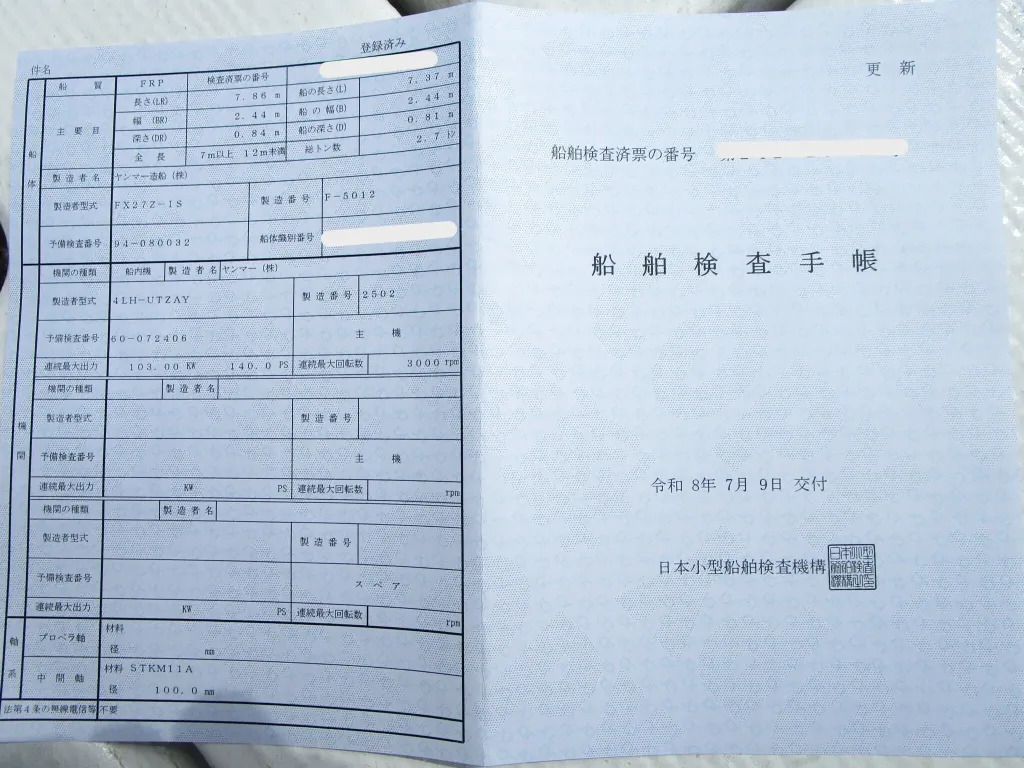 登録済み
件名
船質 FRP 検査済票の番号
船体
主要目
長さ(LR) 7.86 m 船の長さ(L) 7.37 m
幅 (BR) 2.44 m 船の幅(B) 2.44 m
深さ(DR) 0.84 m 船の深さ(D) 0.81 m
全長 7m以上 12m未満 総トン数 2.7 トン
製造者名 ヤンマー造船(株)
製造者型式 FX27Z-1S 製造番号 F-5012
予備検査番号 94-080032 船体識別番号
機関
機関の種類 船内機 製造者名 ヤンマー(株)
製造者型式 4LH-UTZAY 製造番号 2502
予備検査番号 60-072406 主機
連続最大出力 103.00 KW 140.0 PS 連続最大回転数 3000 rpm
機関の種類 製造者名
製造者型式 製造番号
予備検査番号 主機
連続最大出力 KW PS 連続最大回転数 rpm
機関の種類 製造者名
製造者型式 製造番号
予備検査番号 スペア
連続最大出力 KW PS 連続最大回転数 rpm
軸系
プロペラ軸 材料
径 mm
中間軸 材料 STKM11A
径 100.0 mm
法第4条の無線電信等 不要
更新
船舶検査済票の番号
船舶検査手帳
令和 8年 7月 9日 交付
日本小型船舶検査機構